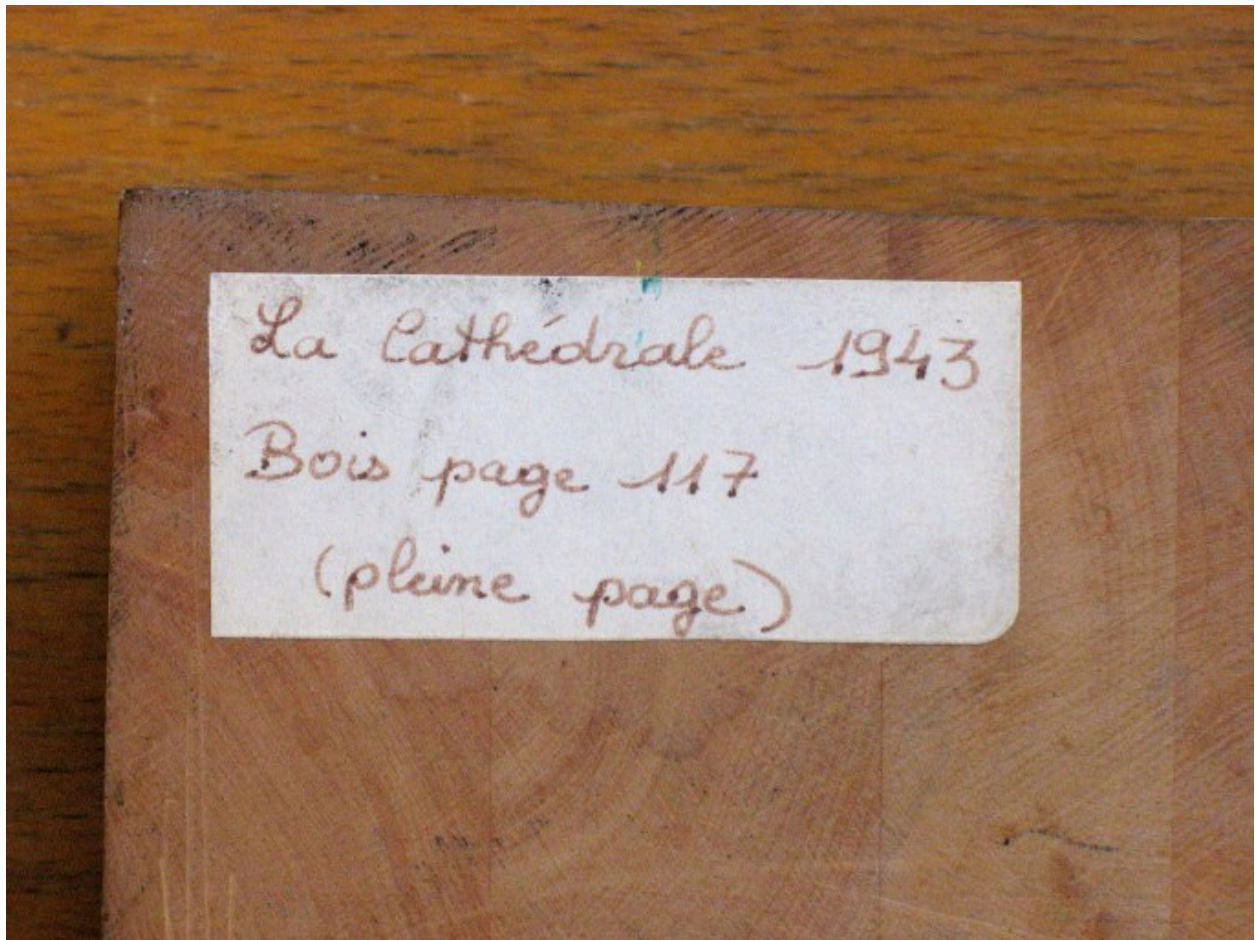 La Cathédrale 1943
Bois page 117
(pleine page)